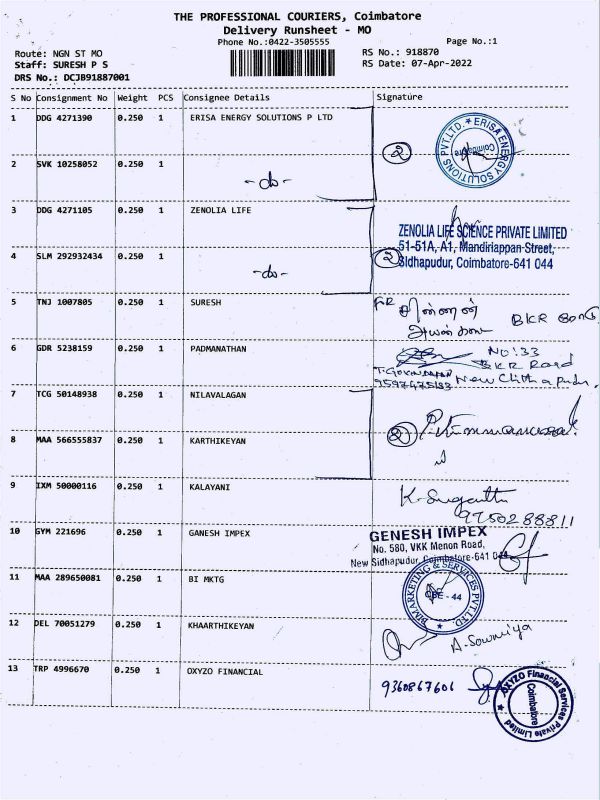 THE PROFESSIONAL COURIERS, Coimbatore
Delivery Runsheet - MO
Phone No.:0422-3505555
Page No.:1
Route: NGN ST MO
RS No.: 918870
Staff: SURESH P S
RS Date: 07-Apr-2022
DRS No.: DCJB91887001
S No Consignment No Weight PCS Consignee Details Signature
1 DDG 4271390 0.250 1 ERISA ENERGY SOLUTIONS P LTD
ERISA ENERGY SOLUTIONS PVT.LTD. ★
Coimbatore
2
2 SVK 10258052 0.250 1
-do-
3 DDG 4271105 0.250 1 ZENOLIA LIFE
ZENOLIA LIFE SCIENCE PRIVATE LIMITED
51-51A, A1, Mandiriappan Street,
Sidhapudur, Coimbatore-641 044
2
4 SLM 292932434 0.250 1
-do-
5 TNJ 1007805 0.250 1 SURESH
BKR
6 GDR 5238159 0.250 1 PADMANATHAN
NO:33
BKR Road
7 TCG 50148938 0.250 1 NILAVALAGAN
2
8 MAA 566555837 0.250 1 KARTHIKEYAN
9 IXM 50000116 0.250 1 KALAYANI
9750288811
10 GYM 221696 0.250 1 GANESH IMPEX
GENESH IMPEX
No. 580, VKK Menon Road,
New Sidhapudur, Coimbatore-641 044
11 MAA 289650081 0.250 1 BI MKTG
BIMARKETING & SERVICES PVT.LTD ★
CBE - 44
12 DEL 70051279 0.250 1 KHAARTHIKEYAN
A-Sowmiya
13 TRP 4996670 0.250 1 OXYZO FINANCIAL
9360867601
OXYZO Financial Services Private Limited ★
Coimbatore